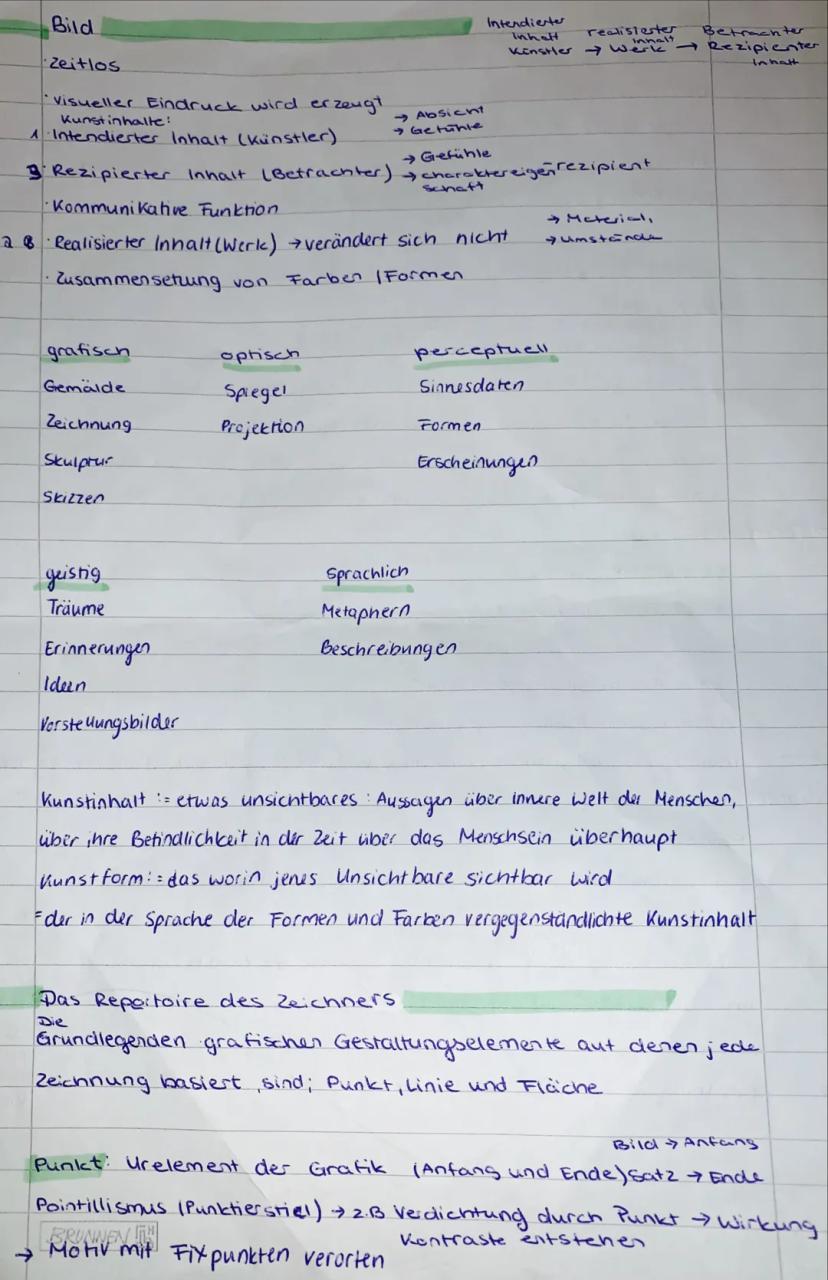 Bild
Intendierter Inhalt Künstler → realisierter Inhalt Werk → Betrachter Rezipienter Inhalt
·Zeitlos
·visueller Eindruck wird erzeugt
Kunstinhalte:
→ Absicht
1 ·Intendierter Inhalt (Künstler) → Gefühle
→ Gefühle
3 ·Rezipierter Inhalt (Betrachter) → charaktereigenschaft rezipient
·Kommunikative Funktion
→ Material,
2 ·Realisierter Inhalt (Werk) → verändert sich nicht → umstände
·Zusammensetzung von Farben / Formen
grafisch optisch perceptuell
Gemälde Spiegel Sinnesdaten
Zeichnung Projektion Formen
Skulptur Erscheinungen
Skizzen
geistig Sprachlich
Träume Metaphern
Erinnerungen Beschreibungen
Ideen
Vorstellungsbilder
Kunstinhalt := etwas unsichtbares : Aussagen über innere Welt der Menschen,
über ihre Befindlichkeit in der Zeit über das Menschsein überhaupt
Kunstform := das worin jenes Unsichtbare sichtbar wird
= der in der Sprache der Formen und Farben vergegenständlichte Kunstinhalt
Das Repertoire des Zeichners
Die
Grundlegenden grafischen Gestaltungselemente auf denen jede
Zeichnung basiert, sind; Punkt, Linie und Fläche
Bild → Anfang
Punkt: Urelement der Grafik (Anfang und Ende) Satz → Ende
Pointillismus (Punktierstiel) → z.B Verdichtung durch Punkt → Wirkung
Kontraste entstehen
BRUNNEN
→ Motiv mit Fixpunkten verorten